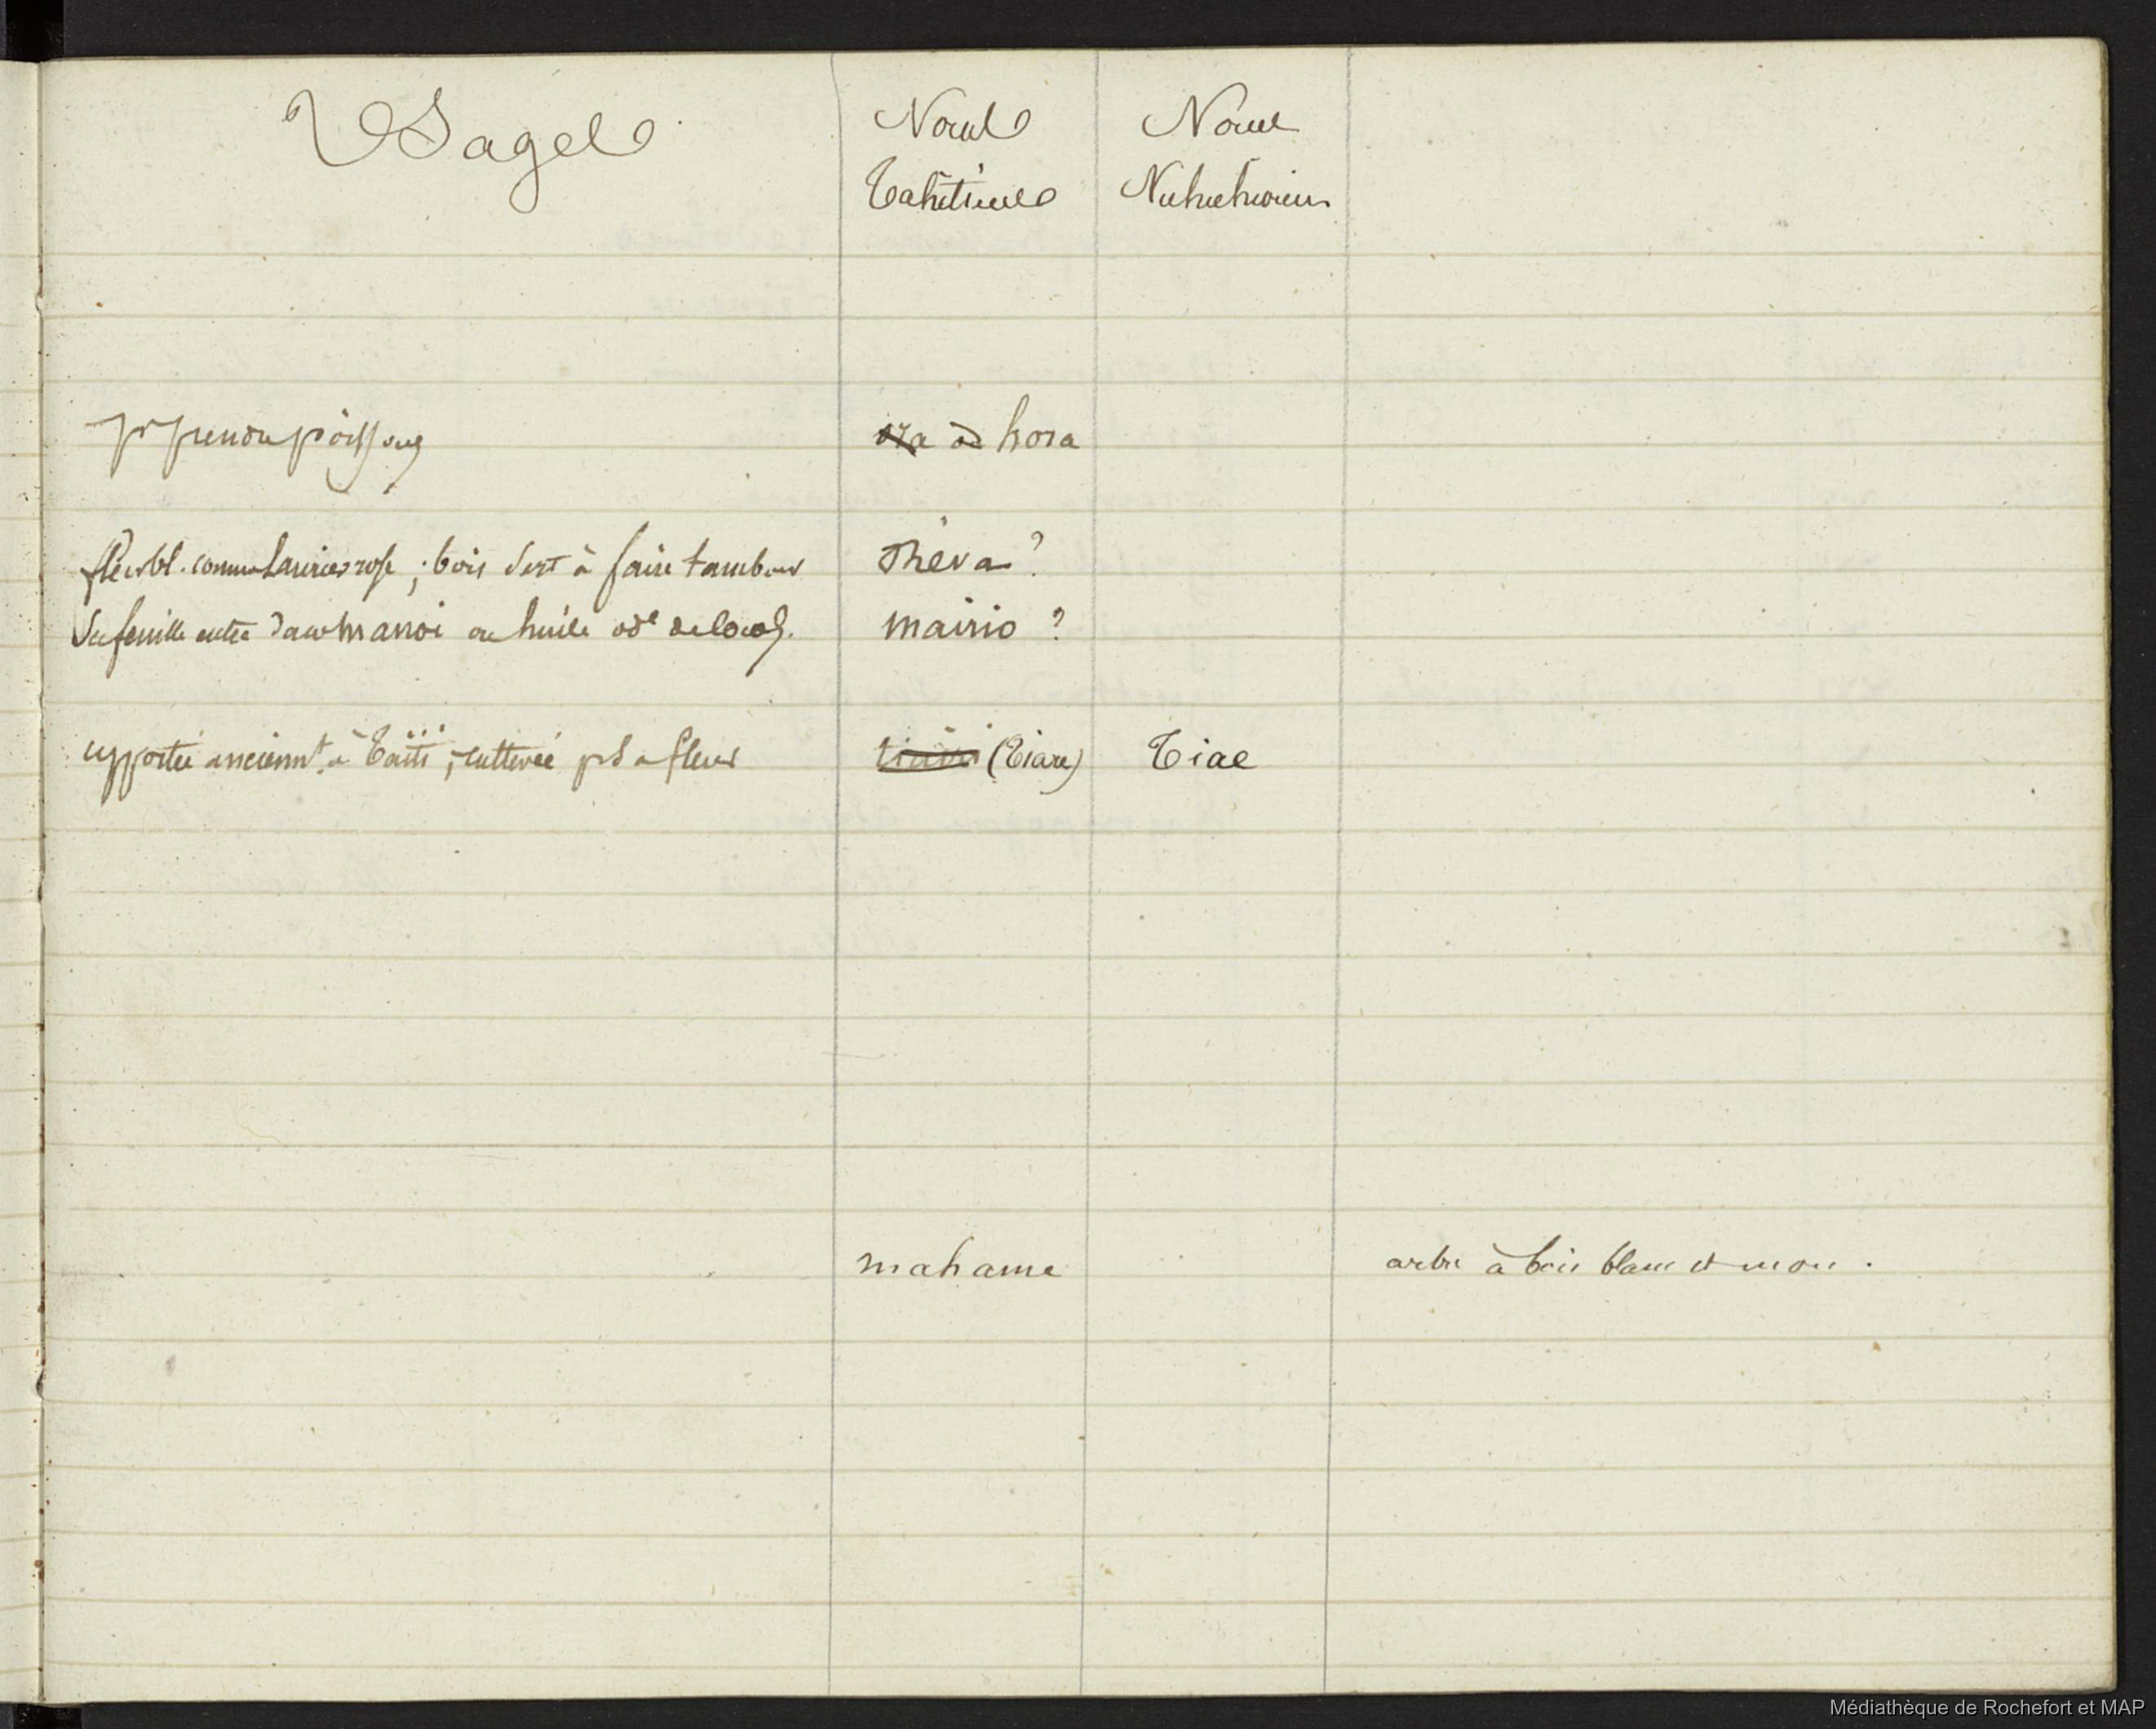 Usages
Noms Noms
Tahitiens Nuhuhiviens
pr prendre poissons ora ou hora
fleur bl. comme Laurier rose ; bois sert à faire tambour rheva ?
Sa feuille entre dans manoi ou huile odte de coco. mairio ?
apportée anciennt à Taïti ; cultivée pr sa fleur (Tiare) Tiae
mahame arbre à bois blanc et mou.
Médiathèque de Rochefort et MAP